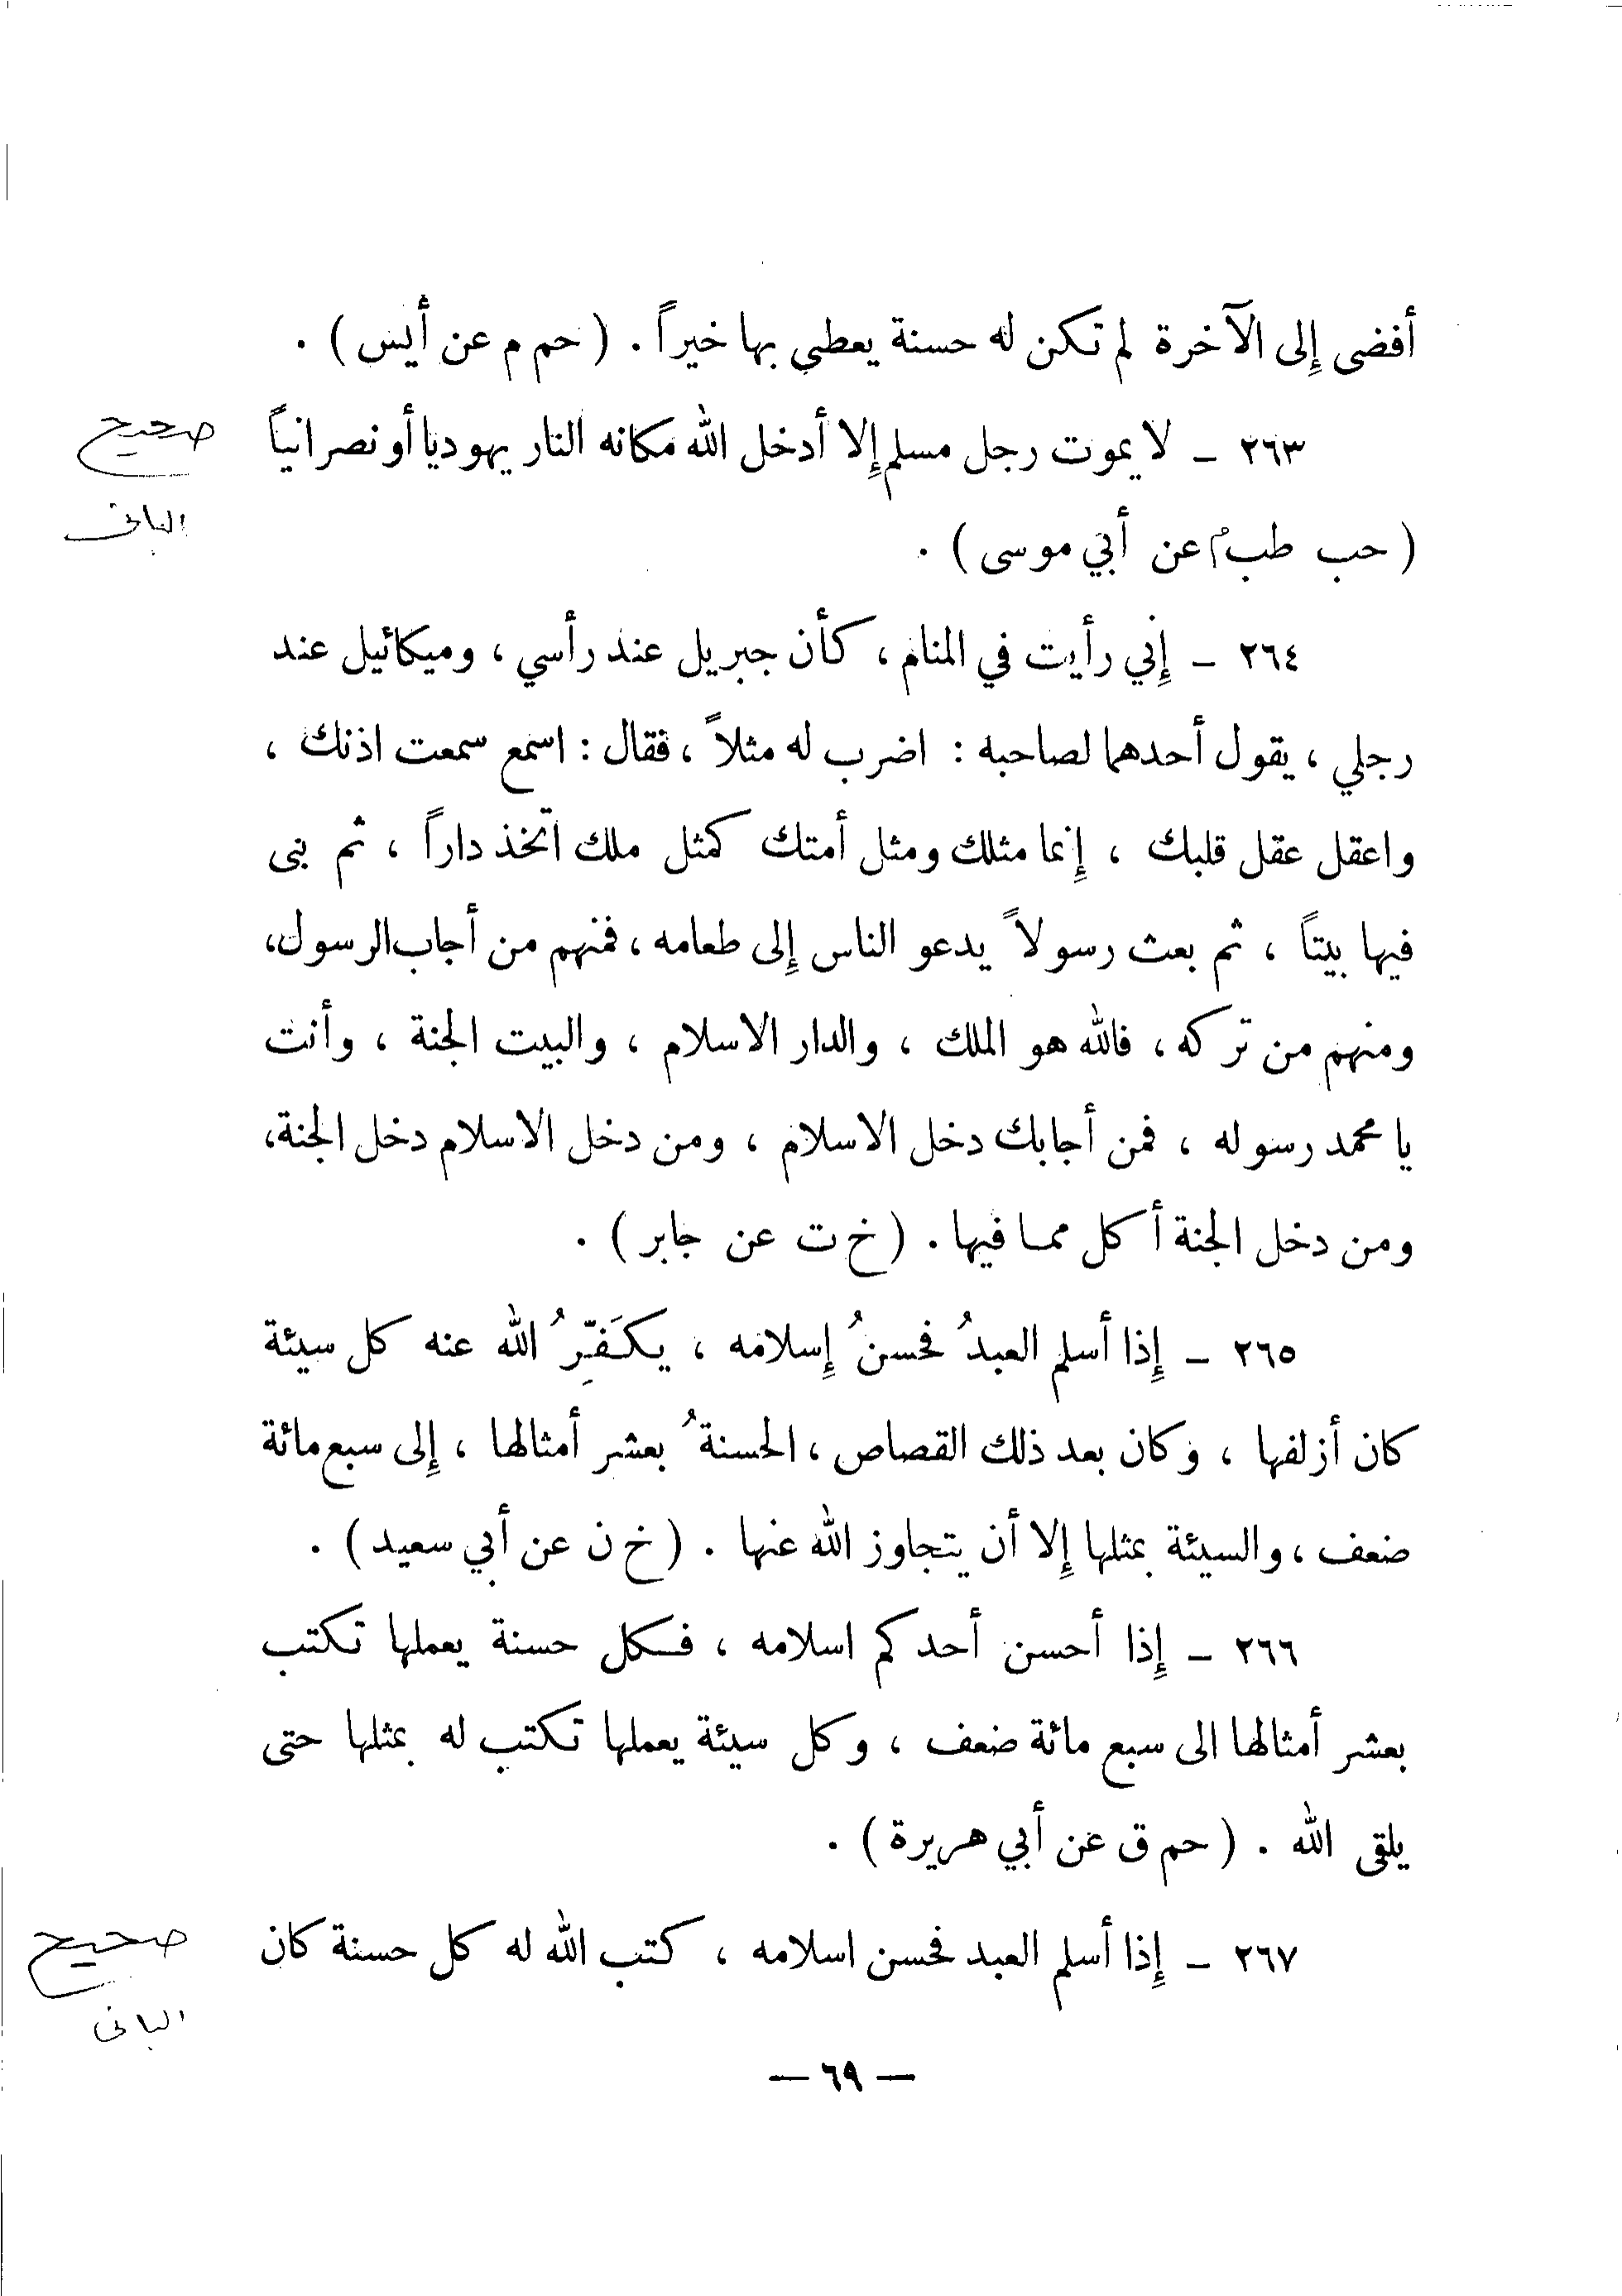 أفضى إِلى الآخرة لم تكن له حسنة يعطي بها خيراً . ( حم م عن أنس ) .
٢٦٣ – لا يموت رجل مسلم إِلا أدخل الله مكانه النار يهوديا أو نصرانياً
صحيح
البانى
( حب طب م عن أبي موسى ) .
٢٦٤ – إِني رأيت في المنام ، كأن جبريل عند رأسي ، وميكائيل عند
رجلي ، يقول أحدهما لصاحبه : اضرب له مثلاً ، فقال : اسمع سمعت اذنك ،
واعقل عقل قلبك ، إِنما مثلك ومثل أمتك كمثل ملك اتخذ داراً ، ثم بنى
فيها بيتاً ، ثم بعث رسولاً يدعو الناس إِلى طعامه ، فمنهم من أجاب الرسول،
ومنهم من تركه ، فالله هو الملك ، والدار الاسلام ، والبيت الجنة ، وأنت
يا محمد رسوله ، فمن أجابك دخل الاسلام ، ومن دخل الاسلام دخل الجنة،
ومن دخل الجنة أكل مما فيها . ( خ ت عن جابر ) .
٢٦٥ – إِذا أسلم العبدُ فحسنُ إِسلامه ، يكَفِّرُ الله عنه كل سيئة
كان أزلفها ، وكان بعد ذلك القصاص ، الحسنةُ بعشر أمثالها ، إِلى سبع مائة
ضعف ، والسيئة بمثلها إِلا أن يتجاوز الله عنها . ( خ ن عن أبي سعيد ) .
٢٦٦ – إِذا أحسن أحدكم اسلامه ، فكل حسنة يعملها تكتب
بعشر أمثالها الى سبع مائة ضعف ، وكل سيئة يعملها تكتب له بمثلها حتى
يلقى الله . ( حم ق عن أبي هريرة ) .
٢٦٧ – إِذا أسلم العبد فحسن اسلامه ، كتب الله له كل حسنة كان
صحيح
البانى
— ٦٩ —